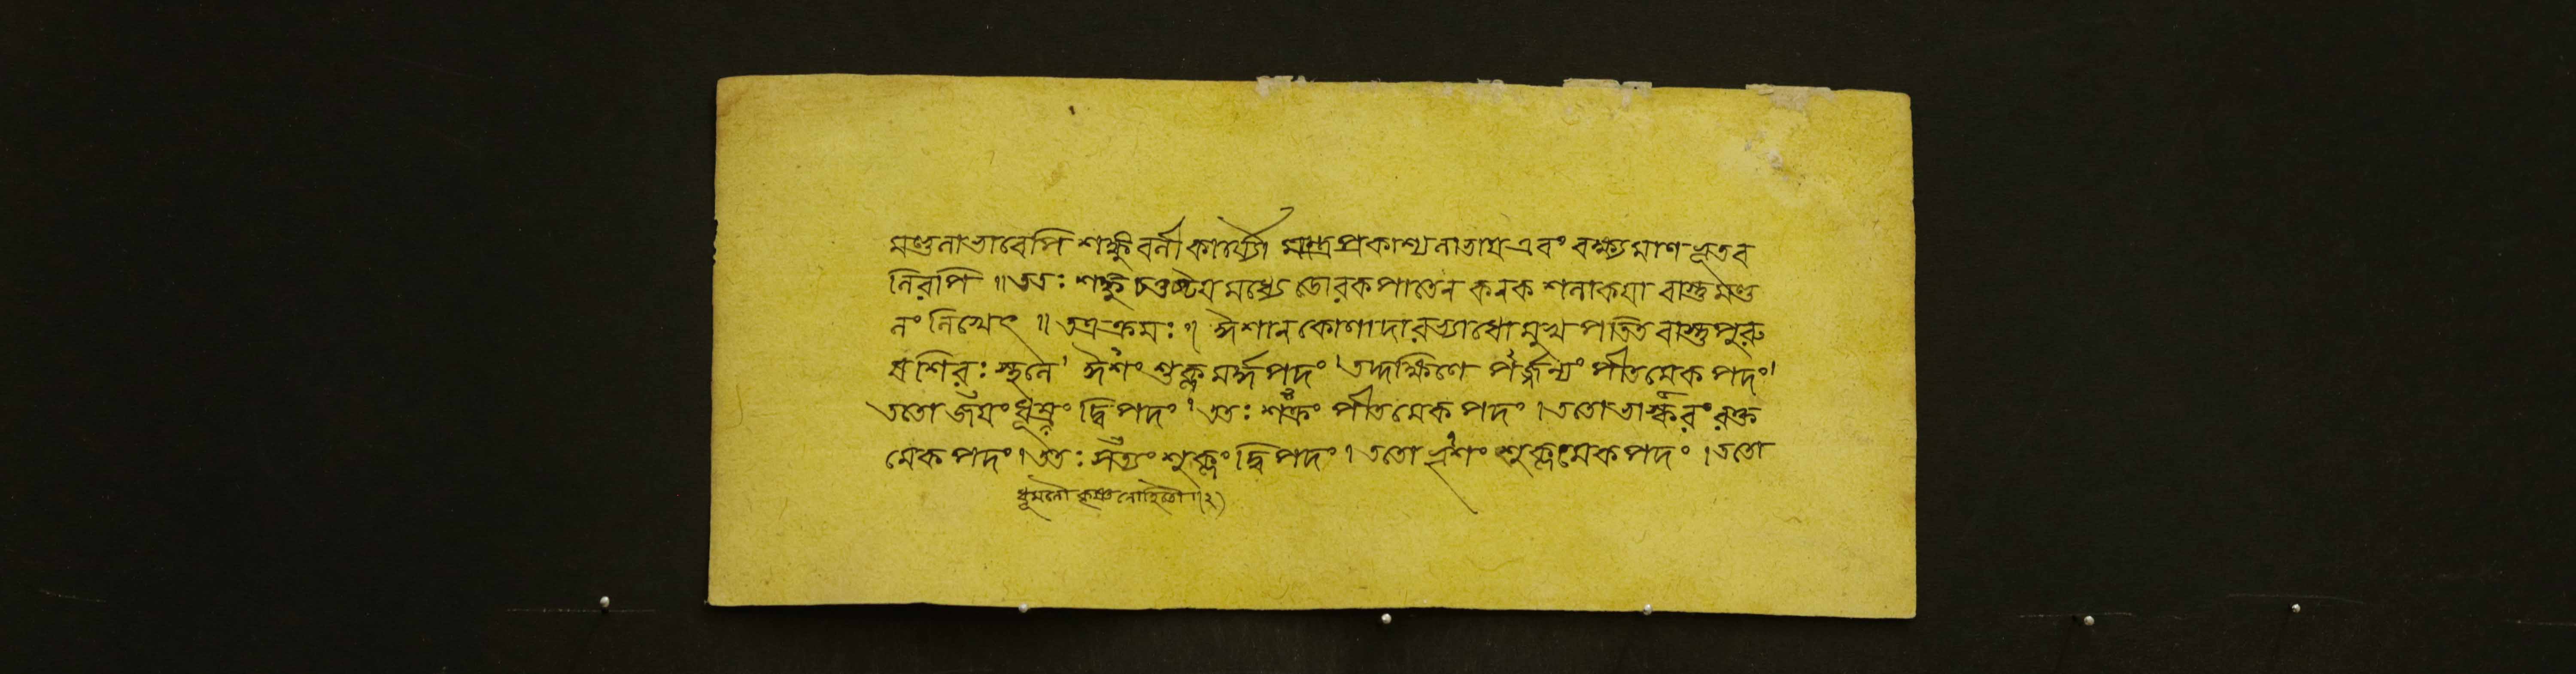 মণ্ডলাভাবেপি শঙ্কুবলী কার্য্যৌ মন্ত্রপ্রকাশ্যনাভায এবং বক্ষ্যমাণ ভূতব
লিরপি ॥ ততঃ শঙ্কু চতুষ্টয মধ্যে ডোরকপাতেন কনক শলাকযা বাস্তুমণ্ড
লং লিখেৎ ॥ তত্র ক্রমঃ ॥ ঈশান কোণাদারভ্যাধোমুখ পতিত বাস্তুপুরু
ষশিরঃ স্থলে। ঈশং শুক্ল মর্দ্ধপদং। তদ্দক্ষিণে পর্জ্জন্যং পীতমেক পদং।
ততো জযং ধূম্রং দ্বিপদং। ততঃ শক্রং পীতমেক পদং। ততো ভাস্করং রক্ত
মেক পদং। ততঃ সত্যং শুক্লং দ্বিপদং। ততো ভৃশং শুক্লমেক পদং। ততো
ধূমলৌ কৃষ্ণলোহিতৌ (২)